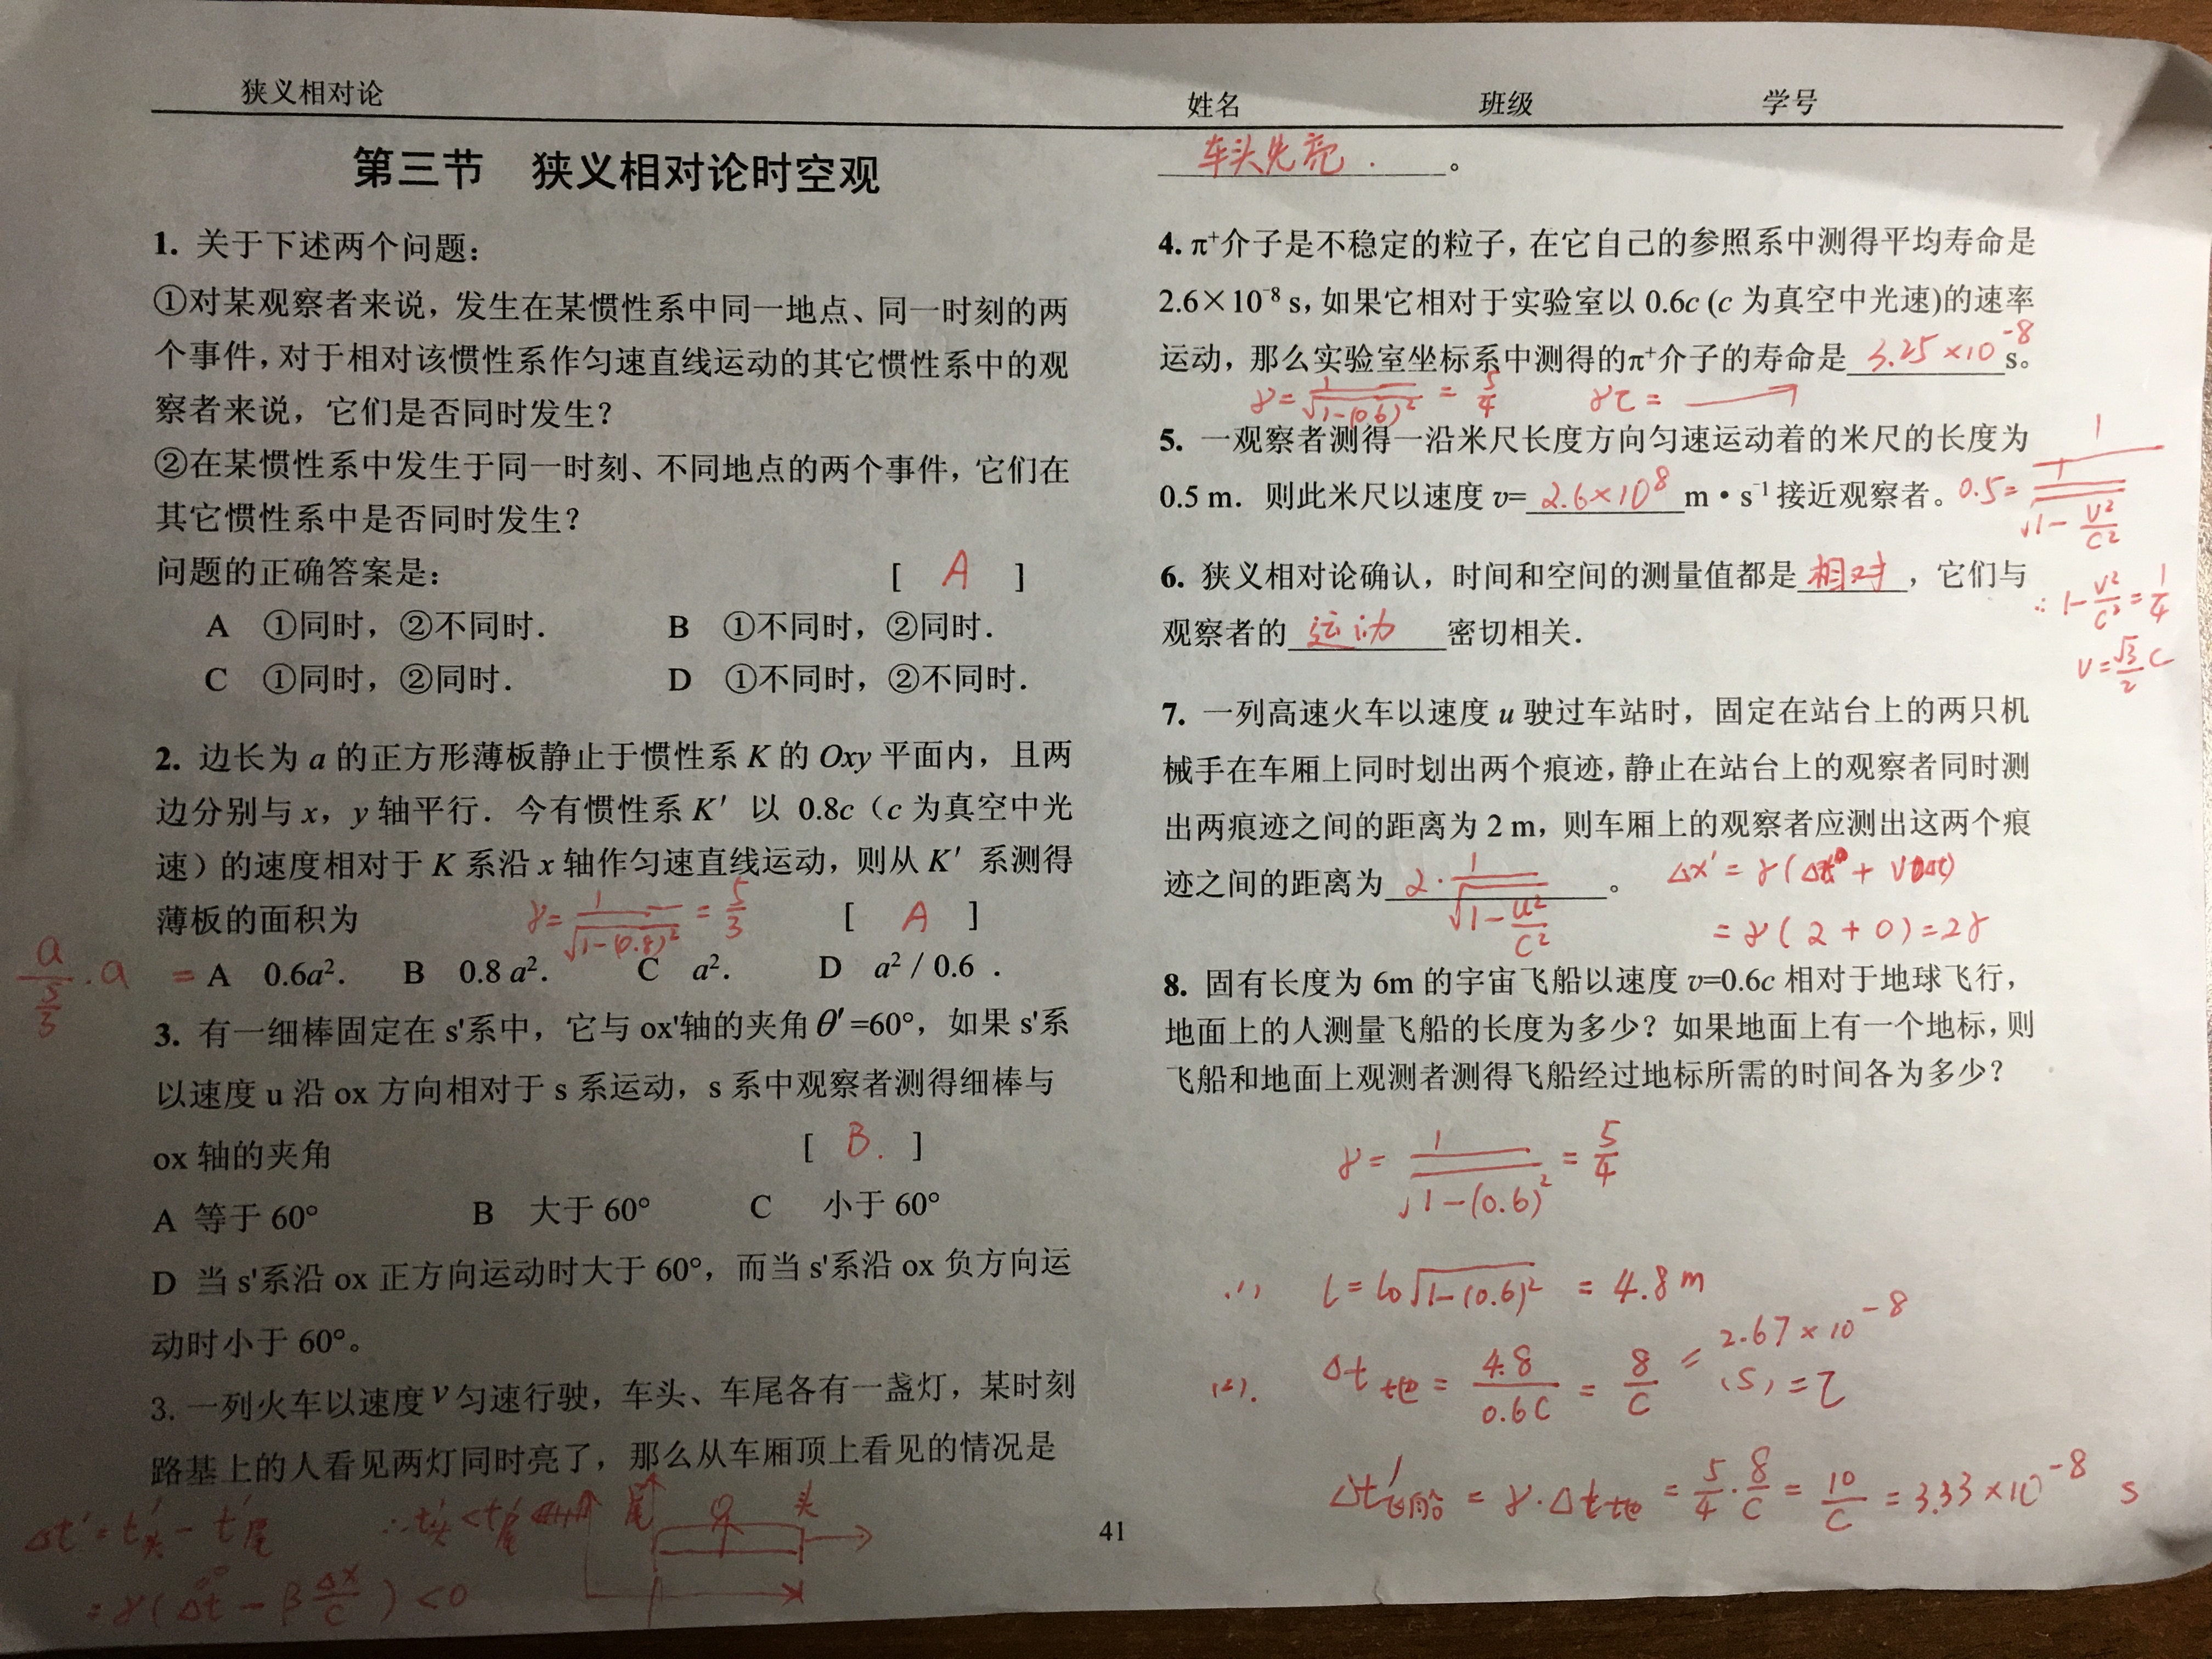 狭义相对论
姓名 班级 学号
第三节 狭义相对论时空观
1. 关于下述两个问题：
①对某观察者来说，发生在某惯性系中同一地点、同一时刻的两
个事件，对于相对该惯性系作匀速直线运动的其它惯性系中的观
察者来说，它们是否同时发生？
②在某惯性系中发生于同一时刻、不同地点的两个事件，它们在
其它惯性系中是否同时发生？
问题的正确答案是： [ A ]
A ①同时，②不同时． B ①不同时，②同时．
C ①同时，②同时． D ①不同时，②不同时．
2. 边长为 a 的正方形薄板静止于惯性系 K 的 Oxy 平面内，且两
边分别与 x，y 轴平行．今有惯性系 K′ 以 0.8c（c 为真空中光
速）的速度相对于 K 系沿 x 轴作匀速直线运动，则从 K′ 系测得
薄板的面积为 γ=1/√(1-(0.8)²) = 5/3 [ A ]
a/(5/3)·a = A 0.6a². B 0.8 a². C a². D a² / 0.6 .
3. 有一细棒固定在 s'系中，它与 ox'轴的夹角 θ′=60°，如果 s'系
以速度 u 沿 ox 方向相对于 s 系运动，s 系中观察者测得细棒与
ox 轴的夹角 [ B. ]
A 等于 60° B 大于 60° C 小于 60°
D 当 s'系沿 ox 正方向运动时大于 60°，而当 s'系沿 ox 负方向运
动时小于 60°。
3. 一列火车以速度 v 匀速行驶，车头、车尾各有一盏灯，某时刻
路基上的人看见两灯同时亮了，那么从车厢顶上看见的情况是
Δt′=t′头 - t′尾 ∴t′头<t′尾 尾 头
=γ(Δt - βΔx/c) <0
车头先亮. 。
4. π⁺介子是不稳定的粒子，在它自己的参照系中测得平均寿命是
2.6×10⁻⁸ s，如果它相对于实验室以 0.6c (c 为真空中光速)的速率
运动，那么实验室坐标系中测得的π⁺介子的寿命是 3.25×10⁻⁸ s。
γ=1/√(1-(0.6)²) = 5/4 γτ=
5. 一观察者测得一沿米尺长度方向匀速运动着的米尺的长度为
0.5 m．则此米尺以速度 v= 2.6×10⁸ m·s⁻¹接近观察者。
0.5=1/(1/√(1-v²/c²))
∴1-v²/c²=1/4
v=√3/2 c
6. 狭义相对论确认，时间和空间的测量值都是 相对 ，它们与
观察者的 运动 密切相关．
7. 一列高速火车以速度 u 驶过车站时，固定在站台上的两只机
械手在车厢上同时划出两个痕迹，静止在站台上的观察者同时测
出两痕迹之间的距离为 2 m，则车厢上的观察者应测出这两个痕
迹之间的距离为 2·1/√(1-u²/c²) 。
=γ(2+0)=2γ
8. 固有长度为 6m 的宇宙飞船以速度 v=0.6c 相对于地球飞行，
地面上的人测量飞船的长度为多少？如果地面上有一个地标，则
飞船和地面上观测者测得飞船经过地标所需的时间各为多少？
γ= 1/√(1-(0.6)²) = 5/4
(1) l=l₀√(1-(0.6)²) = 4.8m
(2). Δt地= 4.8/0.6c = 8/c = 2.67×10⁻⁸ (s) =τ
Δt′飞船 = γ·Δt地 = 5/4·8/c = 10/c = 3.33×10⁻⁸ s
41